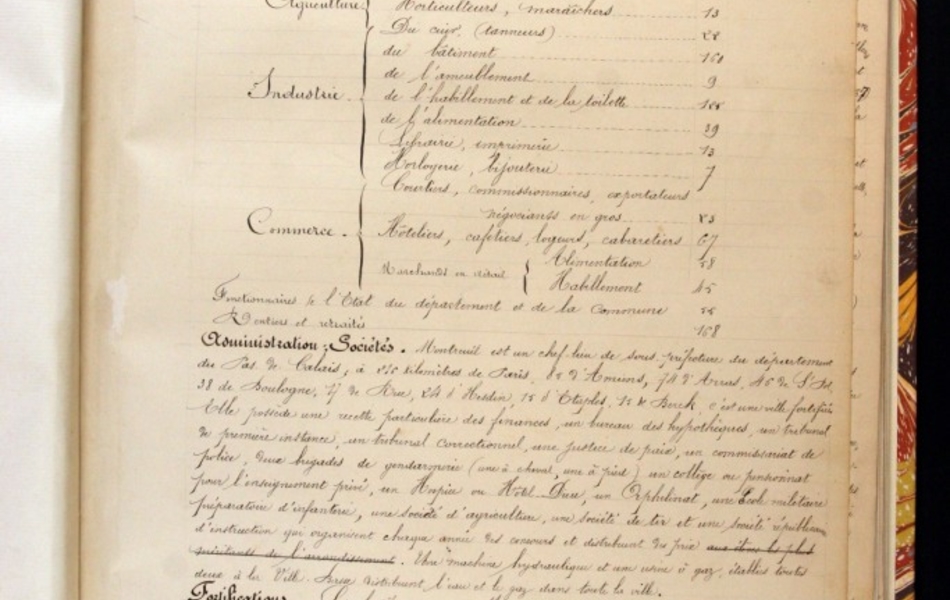 Agriculture. Horticulteurs, maraîchers 13
Du cuir, (tanneurs)
du bâtiment 150
de l'ameublement 9
Industrie. de l'habillement et de la toilette
de l'alimentation 39
Librairie, imprimerie 13
Horlogerie, bijouterie 7
Courtiers, commissionnaires, exportateurs
négociants en gros
Commerce. Hôteliers, cafetiers, logeurs, cabaretiers 67
Marchands en détail Alimentation 58
Habillement 45
Fonctionnaires de l'Etat du département et de la commune
Rentiers et retraités 168
Administration; Sociétés. Montreuil est un chef-lieu de sous-préfecture du département
du Pas de Calais, à kilomètres de Paris, d'Amiens, 74 d'Arras, 45 de St
38 de Boulogne, 17 de Rue, 24 d'Hesdin, 15 d'Etaples, 15 de Berck, c'est une ville fortifiée
Elle possède une recette particulière des finances, un bureau des hypothèques, un tribunal
de première instance, un tribunal correctionnel, une justice de paix, un commissariat de
police, deux brigades de gendarmerie (une à cheval, une à pied) un collège ou pensionnat
pour l'enseignement privé, un Hospice ou Hôtel-Dieu, un Orphelinat, une École militaire
préparatoire d'infanterie, une société d'agriculture, une société de tir et une société républicaine
d'instruction qui organisent chaque année des concours et distribuent des prix aux élèves les plus
méritants de l'arrondissement. Une machine hydraulique et une usine à gaz, établies toutes
deux à la Ville distribuent l'eau et le gaz dans toute la ville.
Fortifications.